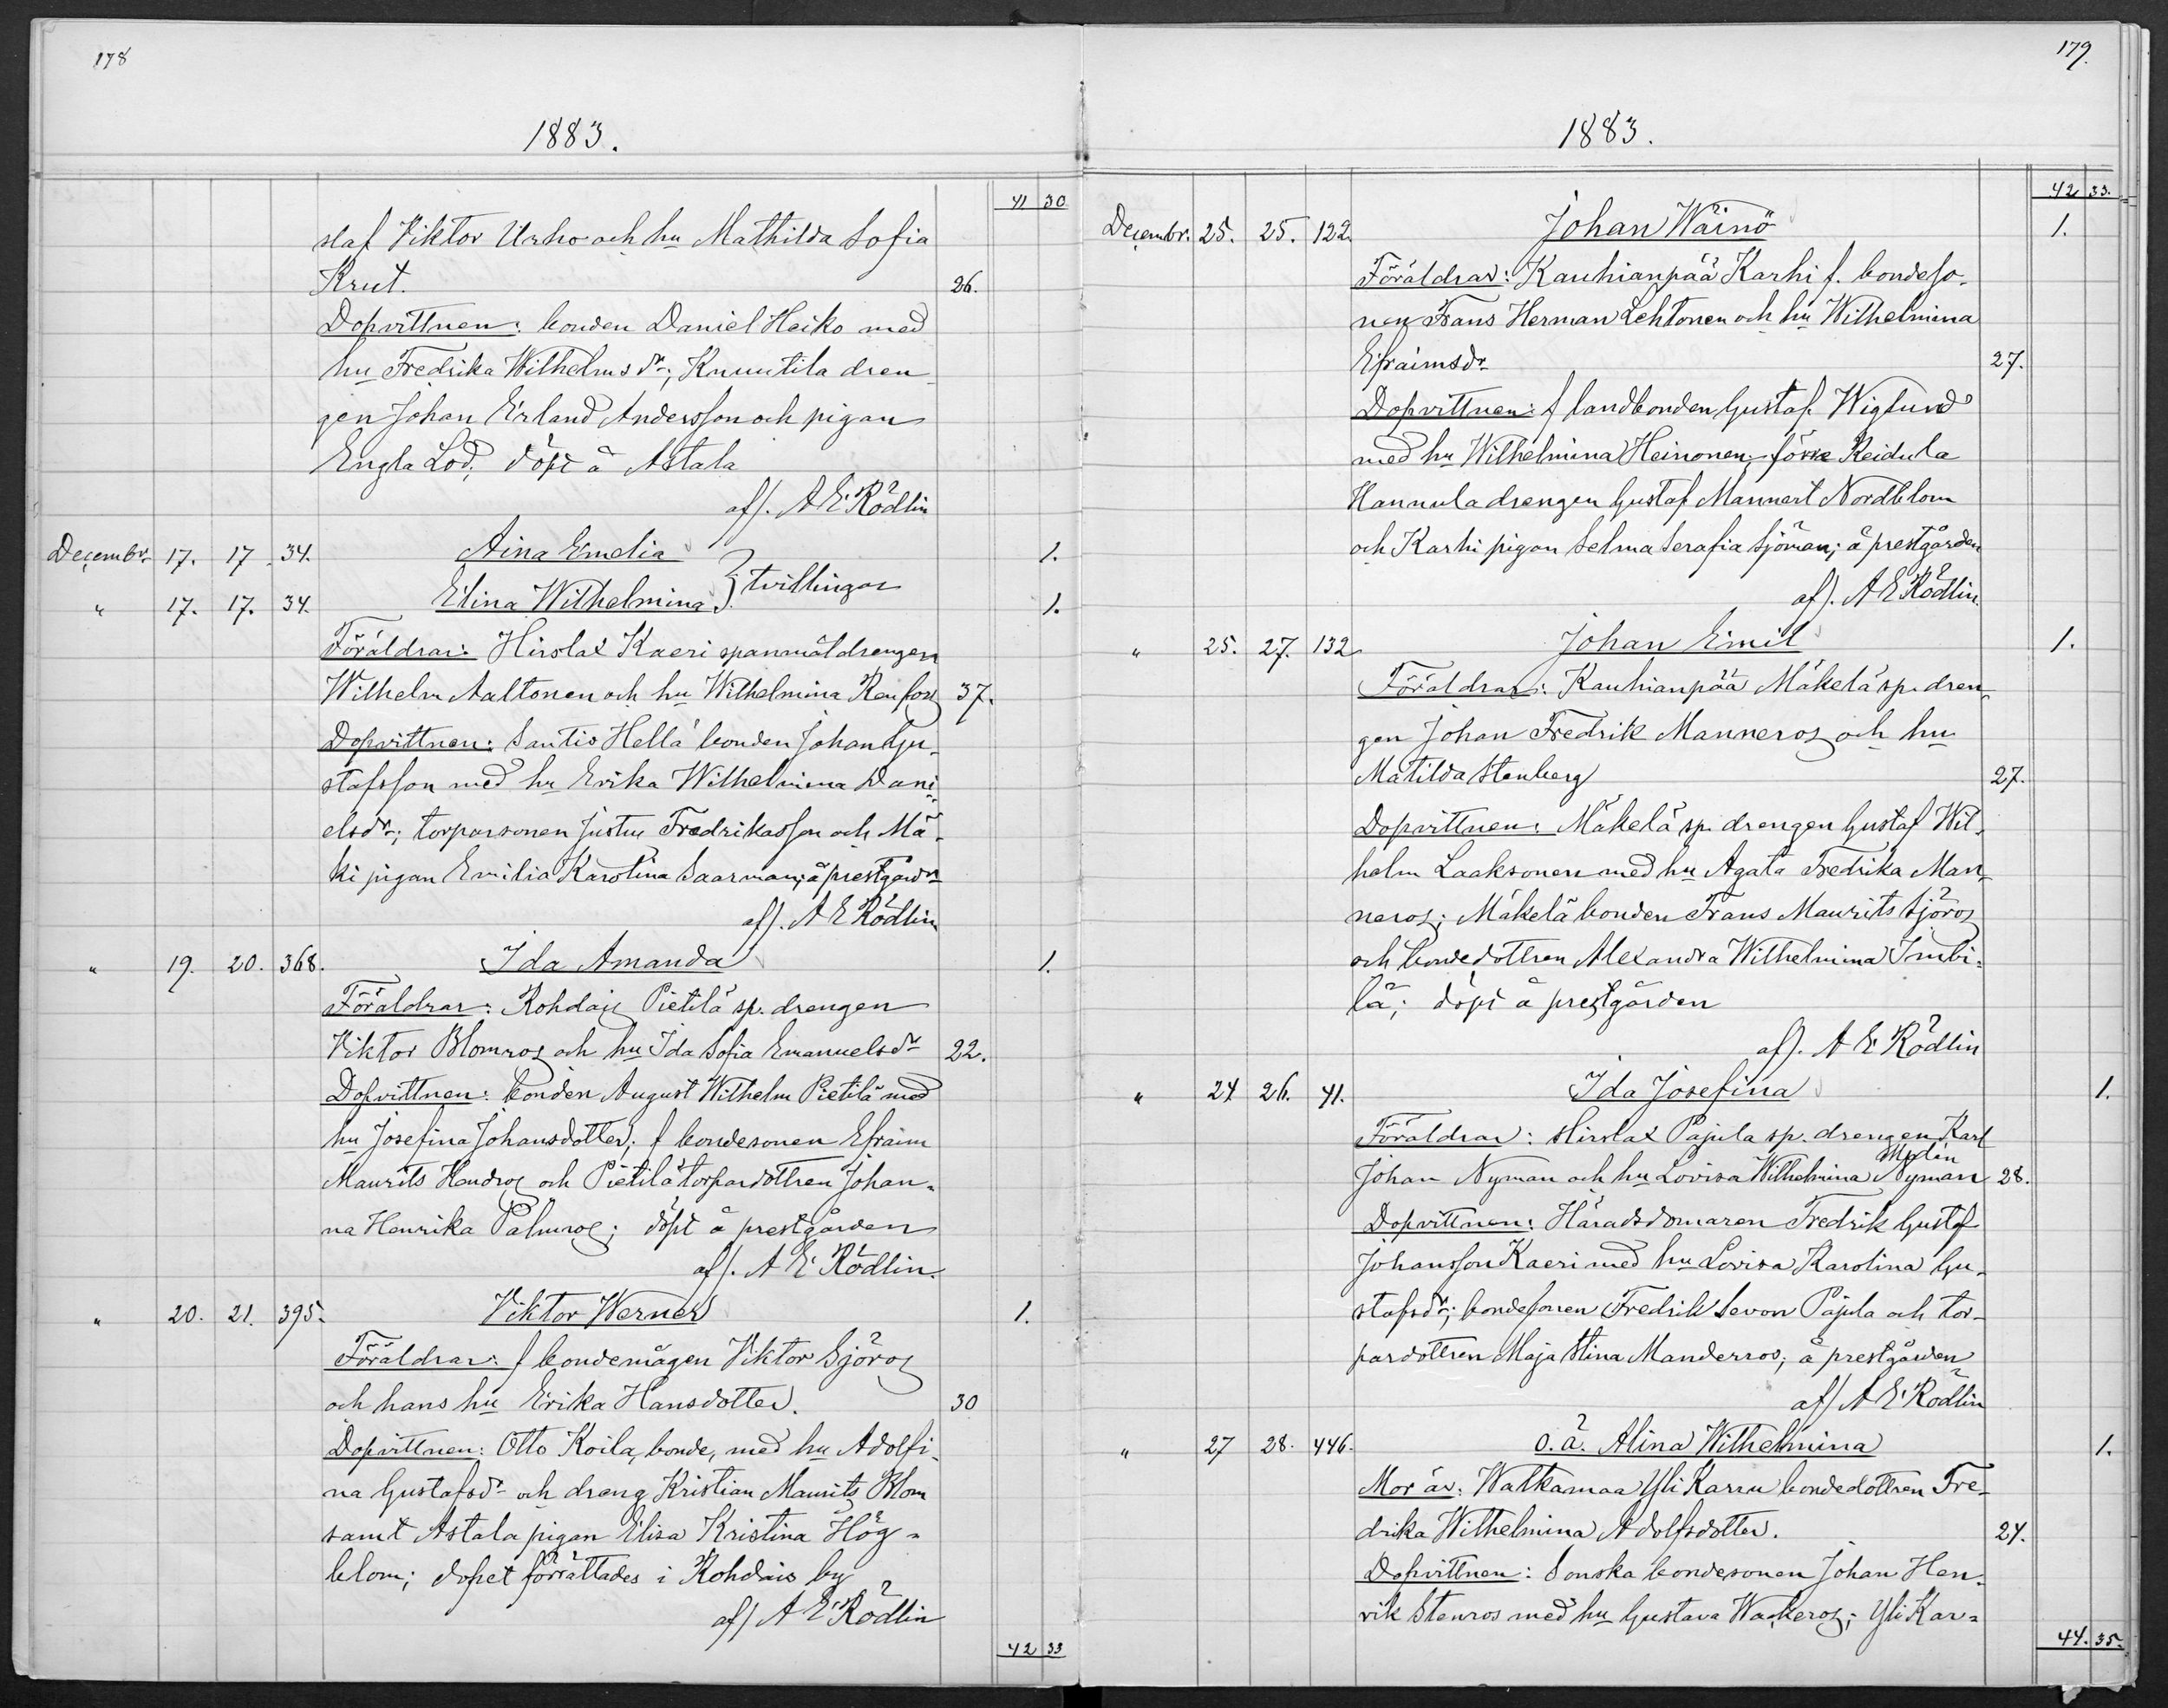 178
1883.
41 30
staf Viktor Urho och hu Mathilda Sofia
Krut. 26.
Dopvittnen: bonden Daniel Heiko med
hu Fredrika Wilhelmsdr; Knuutila dren-
gen Johan Erland Andersson och pigan
Engla Löd; döpt å Astala
af). A E Rödlin
Decembr 17. 17 34. Aina Emelia 1.
} tvillingar
" 17. 17. 34. Elina Wilhelmina 1.
Föräldrar: Hirslax Kaeri spanmåldrengen
Wilhelm Aaltonen och hu Wilhelmina Renfors 37.
Dopvittnen: Santio Hellä bonden Johan Gu-
stafsson med hu Erika Wilhelmina Dani-
elsdr; torparsonen Justus Fredriksson och Mä-
ki pigan Emilia Karolina Saarman; å prestgårdn
af). A E Rödlin
" 19. 20. 368. Ida Amanda 1.
Föräldrar: Rohdais Pietilä sp. drengen
Viktor Blomros och hu Ida Sofia Emanuelsdr 22.
Dopvittnen: bonden August Wilhelm Pietilä med
hu Josefina Johansdotter; f bondesonen Efraim
Maurits Hendros och Pietilä torpardottren Johan-
na Henrika Palmros; döpt å prestgården
af). A E Rödlin.
" 20. 21. 395. Viktor Werner 1.
Föräldrar: f bondemågen Viktor Sjöros
och hans hu Erika Hansdotter. 30
Dopvittnen: Otto Koila, bonde, med hu Adolfi-
na Gustafsdr och dreng Kristian Maurits Blom
samt Astala pigan Elisa Kristina Hög-
blom; dopet förrättades i Rohdais by
af) A E Rödlin
42 33
179.
1883.
42 33.
Decembr. 25. 25. 122. Johan Wäinö 1.
Föräldrar: Kauhianpää Karhi f. bondeso-
nen Frans Herman Lehtonen och hu Wilhelmina
Efraimsdr 27.
Dopvittnen: f landbonden Gustaf Wiglund
med hu Wilhelmina Heinonen; förre Keidula
Hannula drengen Gustaf Mannert Nordblom
och Karhi pigan Selma Serafia Sjöman; å prestgården
af). A E Rödlin.
" 25. 27. 132 Johan Emil 1.
Föräldrar: Kauhianpää Mäkelä sp. dren-
gen Johan Fredrik Manneros och hu
Matilda Stenberg 27.
Dopvittnen: Mäkelä sp. drengen Gustaf Wil-
helm Laaksonen med hu Agata Fredrika Man-
neros; Mäkelä bonden Frans Maurits Sjöros
och bondedottren Alexandra Wilhelmina Inmbi-
lä; döpt å prestgården
af). A E Rödlin
" 24 26. 41. Ida Josefina 1.
Föräldrar: Hirslax Pajula sp. drengen Karl
Johan Nyman och hu Lovisa Wilhelmina Nyman 28.
Dopvittnen: Häradsdomaren Fredrik Gustaf
Johansson Kaeri med hu Lovisa Karolina Gu-
stafsdr; bondesonen Fredrik Sevon Pajula och tor-
pardottren Maja Stina Manderros; å prestgården
af) A E Rödlin
" 27 28. 446. o.ä. Alina Wilhelmina 1.
Mor är: Watkamaa Yli Karru bondedottren Fre-
drika Wilhelmina Adolfsdotter. 24.
Dopvittnen: Sonska bondesonen Johan Hen-
rik Stenros med hu Gustava Wackeros; Yli Kar-
44. 35.